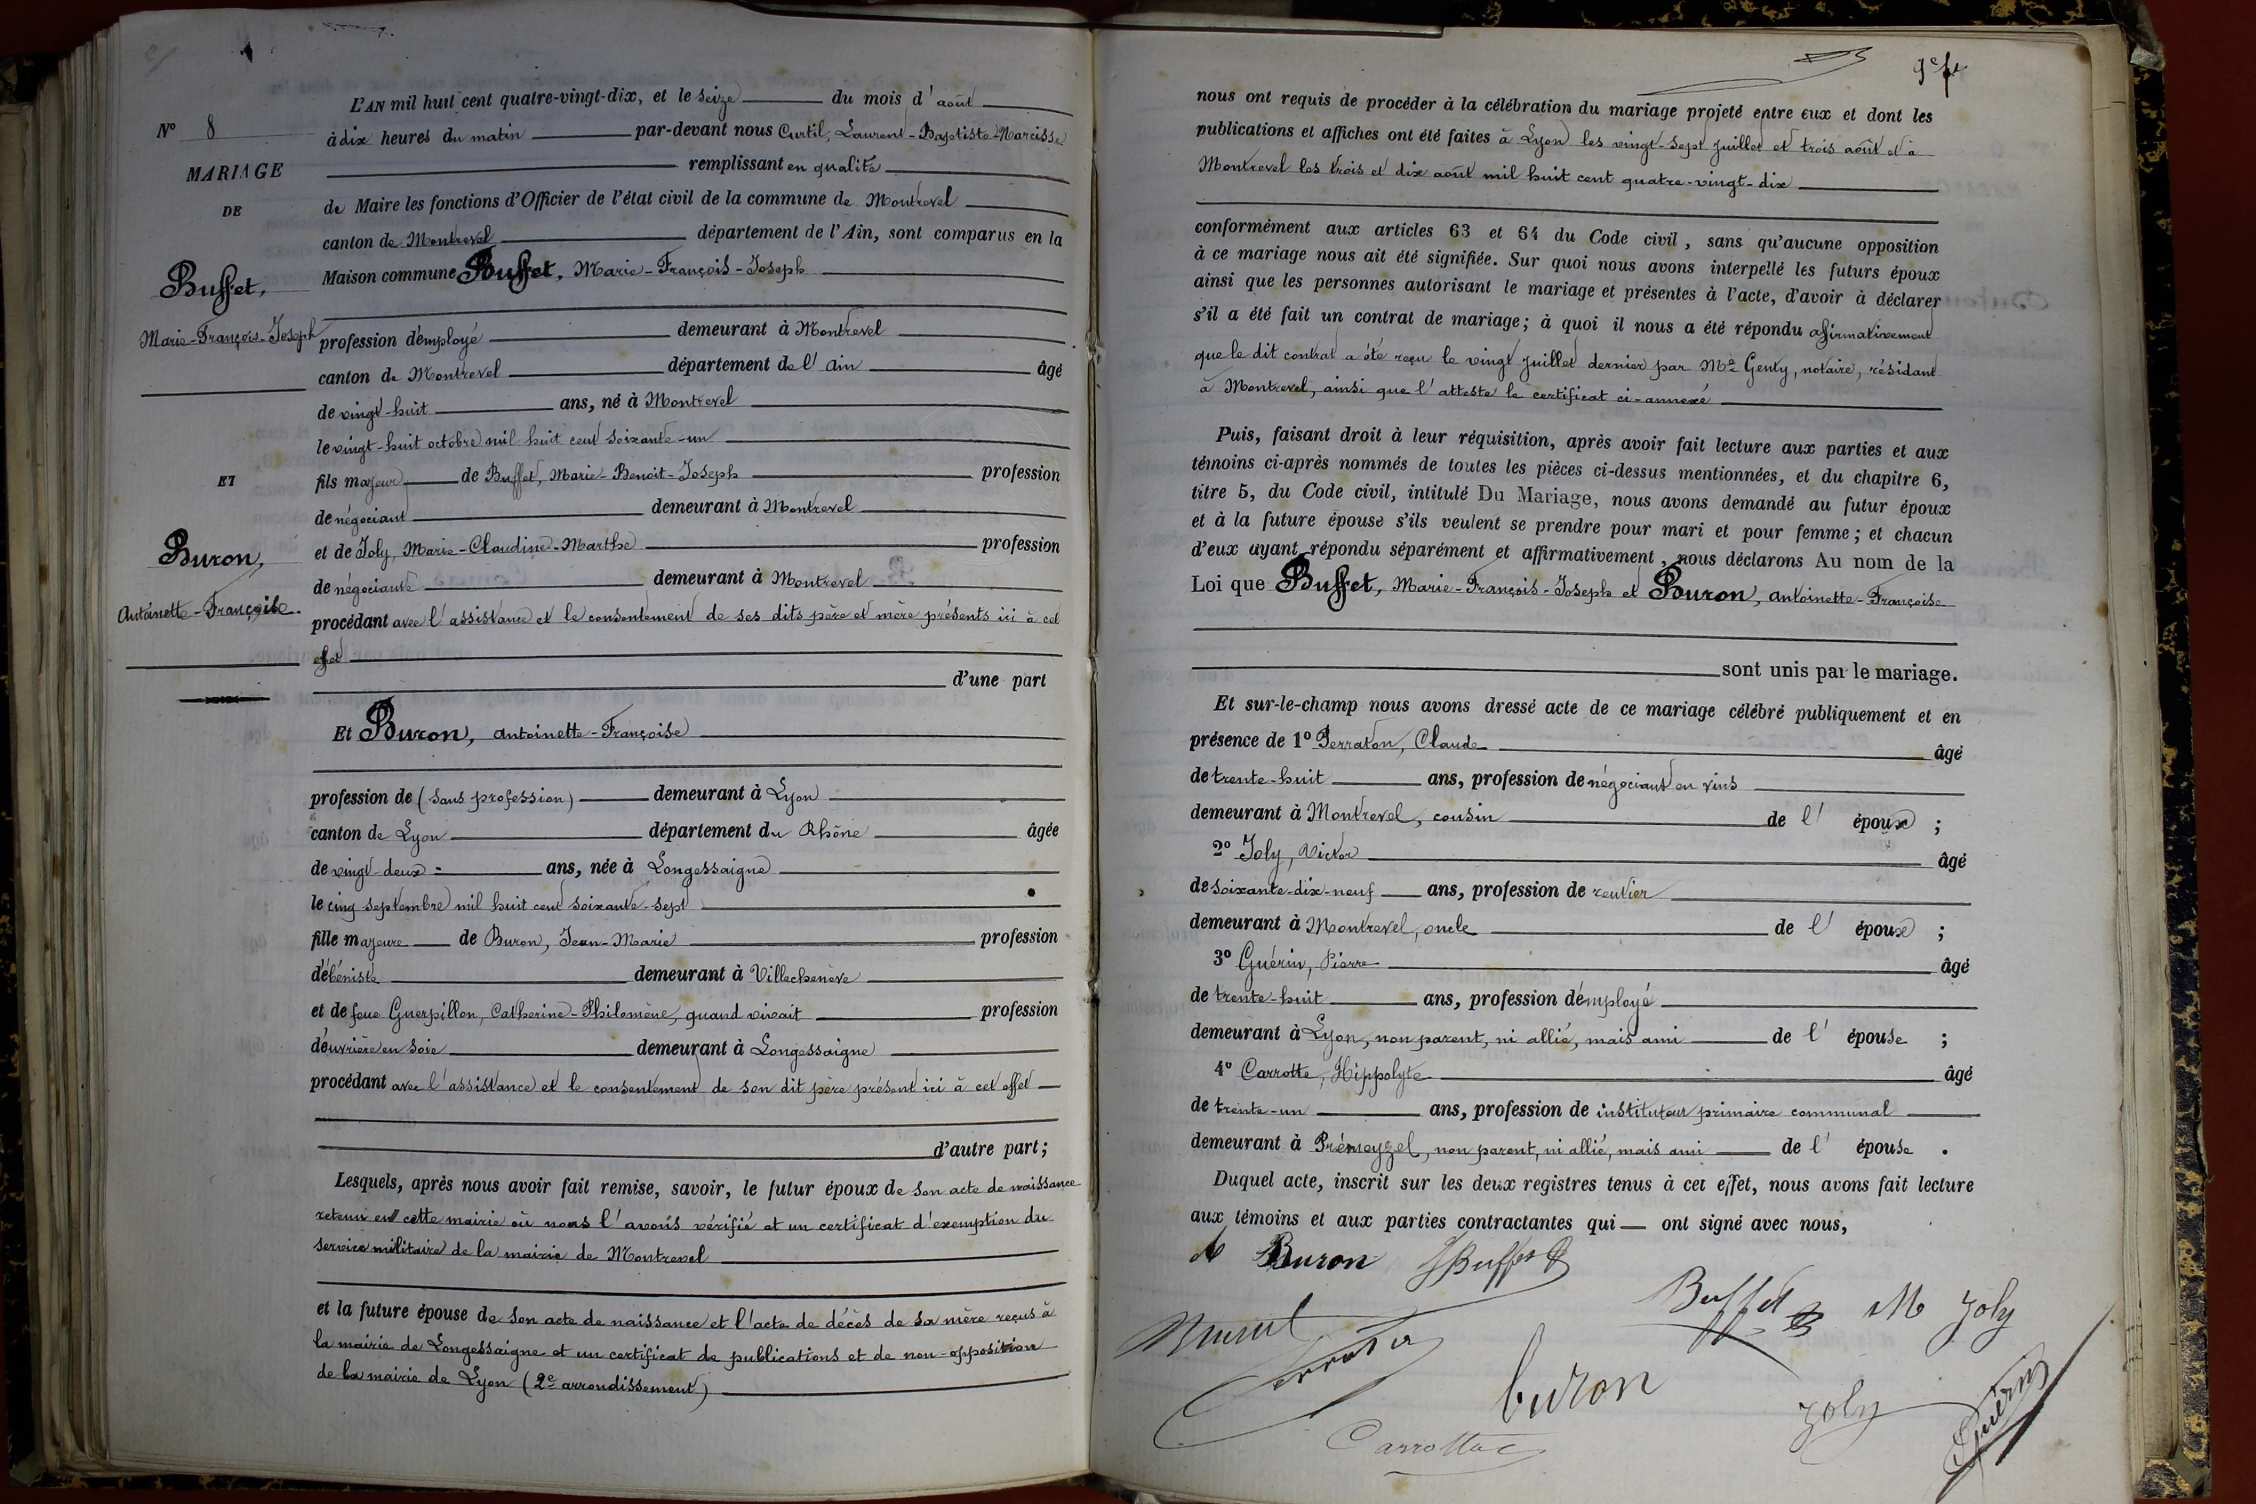 N° 8
MARIAGE
DE
Buffet,
Marie-François-Joseph
ET
Buron,
Antoinette-Françoise
L'AN mil huit cent quatre-vingt-dix, et le seize du mois d'août
à dix heures du matin par-devant nous Curtil, Laurent-Baptiste-Narcisse
remplissant en qualité
de Maire les fonctions d'Officier de l'état civil de la commune de Montrevel
canton de Montrevel département de l'Ain, sont comparus en la
Maison commune Buffet, Marie-François-Joseph
profession d'employé demeurant à Montrevel
canton de Montrevel département de l'Ain âgé
de vingt-huit ans, né à Montrevel
le vingt-huit octobre mil huit cent soixante-un
fils majeur de Buffet, Marie-Benoit-Joseph profession
de négociant demeurant à Montrevel
et de Joly, Marie-Claudine-Marthe profession
de négociante demeurant à Montrevel
procédant avec l'assistance et le consentement de ses dits père et mère présents ici à cet
effet
d'une part
Et Buron, Antoinette-Françoise
profession de (sans profession) demeurant à Lyon
canton de Lyon département du Rhône âgée
de vingt-deux ans, née à Longessaigne
le cinq septembre mil huit cent soixante-sept
fille majeure de Buron, Jean-Marie profession
d'ébéniste demeurant à Villechenève
et de feue Guerpillon, Catherine-Philomène, quand vivait profession
d'ouvrière en soie demeurant à Longessaigne
procédant avec l'assistance et le consentement de son dit père présent ici à cet effet
d'autre part;
Lesquels, après nous avoir fait remise, savoir, le futur époux de son acte de naissance
retenu en cette mairie où nous l'avons vérifié et un certificat d'exemption du
service militaire de la mairie de Montrevel
et la future épouse de son acte de naissance et l'acte de décès de sa mère reçus à
la mairie de Longessaigne et un certificat de publications et de non-opposition
de la mairie de Lyon (2e arrondissement)
nous ont requis de procéder à la célébration du mariage projeté entre eux et dont les
publications et affiches ont été faites à Lyon les vingt-sept juillet et trois août et à
Montrevel les trois et dix août mil huit cent quatre-vingt-dix
conformément aux articles 63 et 64 du Code civil, sans qu'aucune opposition
à ce mariage nous ait été signifiée. Sur quoi nous avons interpellé les futurs époux
ainsi que les personnes autorisant le mariage et présentes à l'acte, d'avoir à déclarer
s'il a été fait un contrat de mariage; à quoi il nous a été répondu affirmativement
que le dit contrat a été reçu le vingt juillet dernier par Me Genty, notaire, résidant
à Montrevel, ainsi que l'atteste le certificat ci-annexé
Puis, faisant droit à leur réquisition, après avoir fait lecture aux parties et aux
témoins ci-après nommés de toutes les pièces ci-dessus mentionnées, et du chapitre 6,
titre 5, du Code civil, intitulé Du Mariage, nous avons demandé au futur époux
et à la future épouse s'ils veulent se prendre pour mari et pour femme; et chacun
d'eux ayant répondu séparément et affirmativement, nous déclarons Au nom de la
Loi que Buffet, Marie-François-Joseph et Buron, Antoinette-Françoise
sont unis par le mariage.
Et sur-le-champ nous avons dressé acte de ce mariage célébré publiquement et en
présence de 1° Perraton, Claude âgé
de trente-huit ans, profession de négociant en vins
demeurant à Montrevel, cousin de l'époux;
2° Joly, Victor âgé
de soixante-dix-neuf ans, profession de rentier
demeurant à Montrevel, oncle de l'époux;
3° Guérin, Pierre âgé
de trente-huit ans, profession d'employé
demeurant à Lyon, non parent, ni allié, mais ami de l'épouse;
4° Carrotte, Hippolyte âgé
de trente-un ans, profession de instituteur primaire communal
demeurant à Prémeyzel, non parent, ni allié, mais ami de l'épouse.
Duquel acte, inscrit sur les deux registres tenus à cet effet, nous avons fait lecture
aux témoins et aux parties contractantes qui ont signé avec nous,
A Buron JBuffet
Buffet M Joly
buron
Joly
Guérin
Carrotte